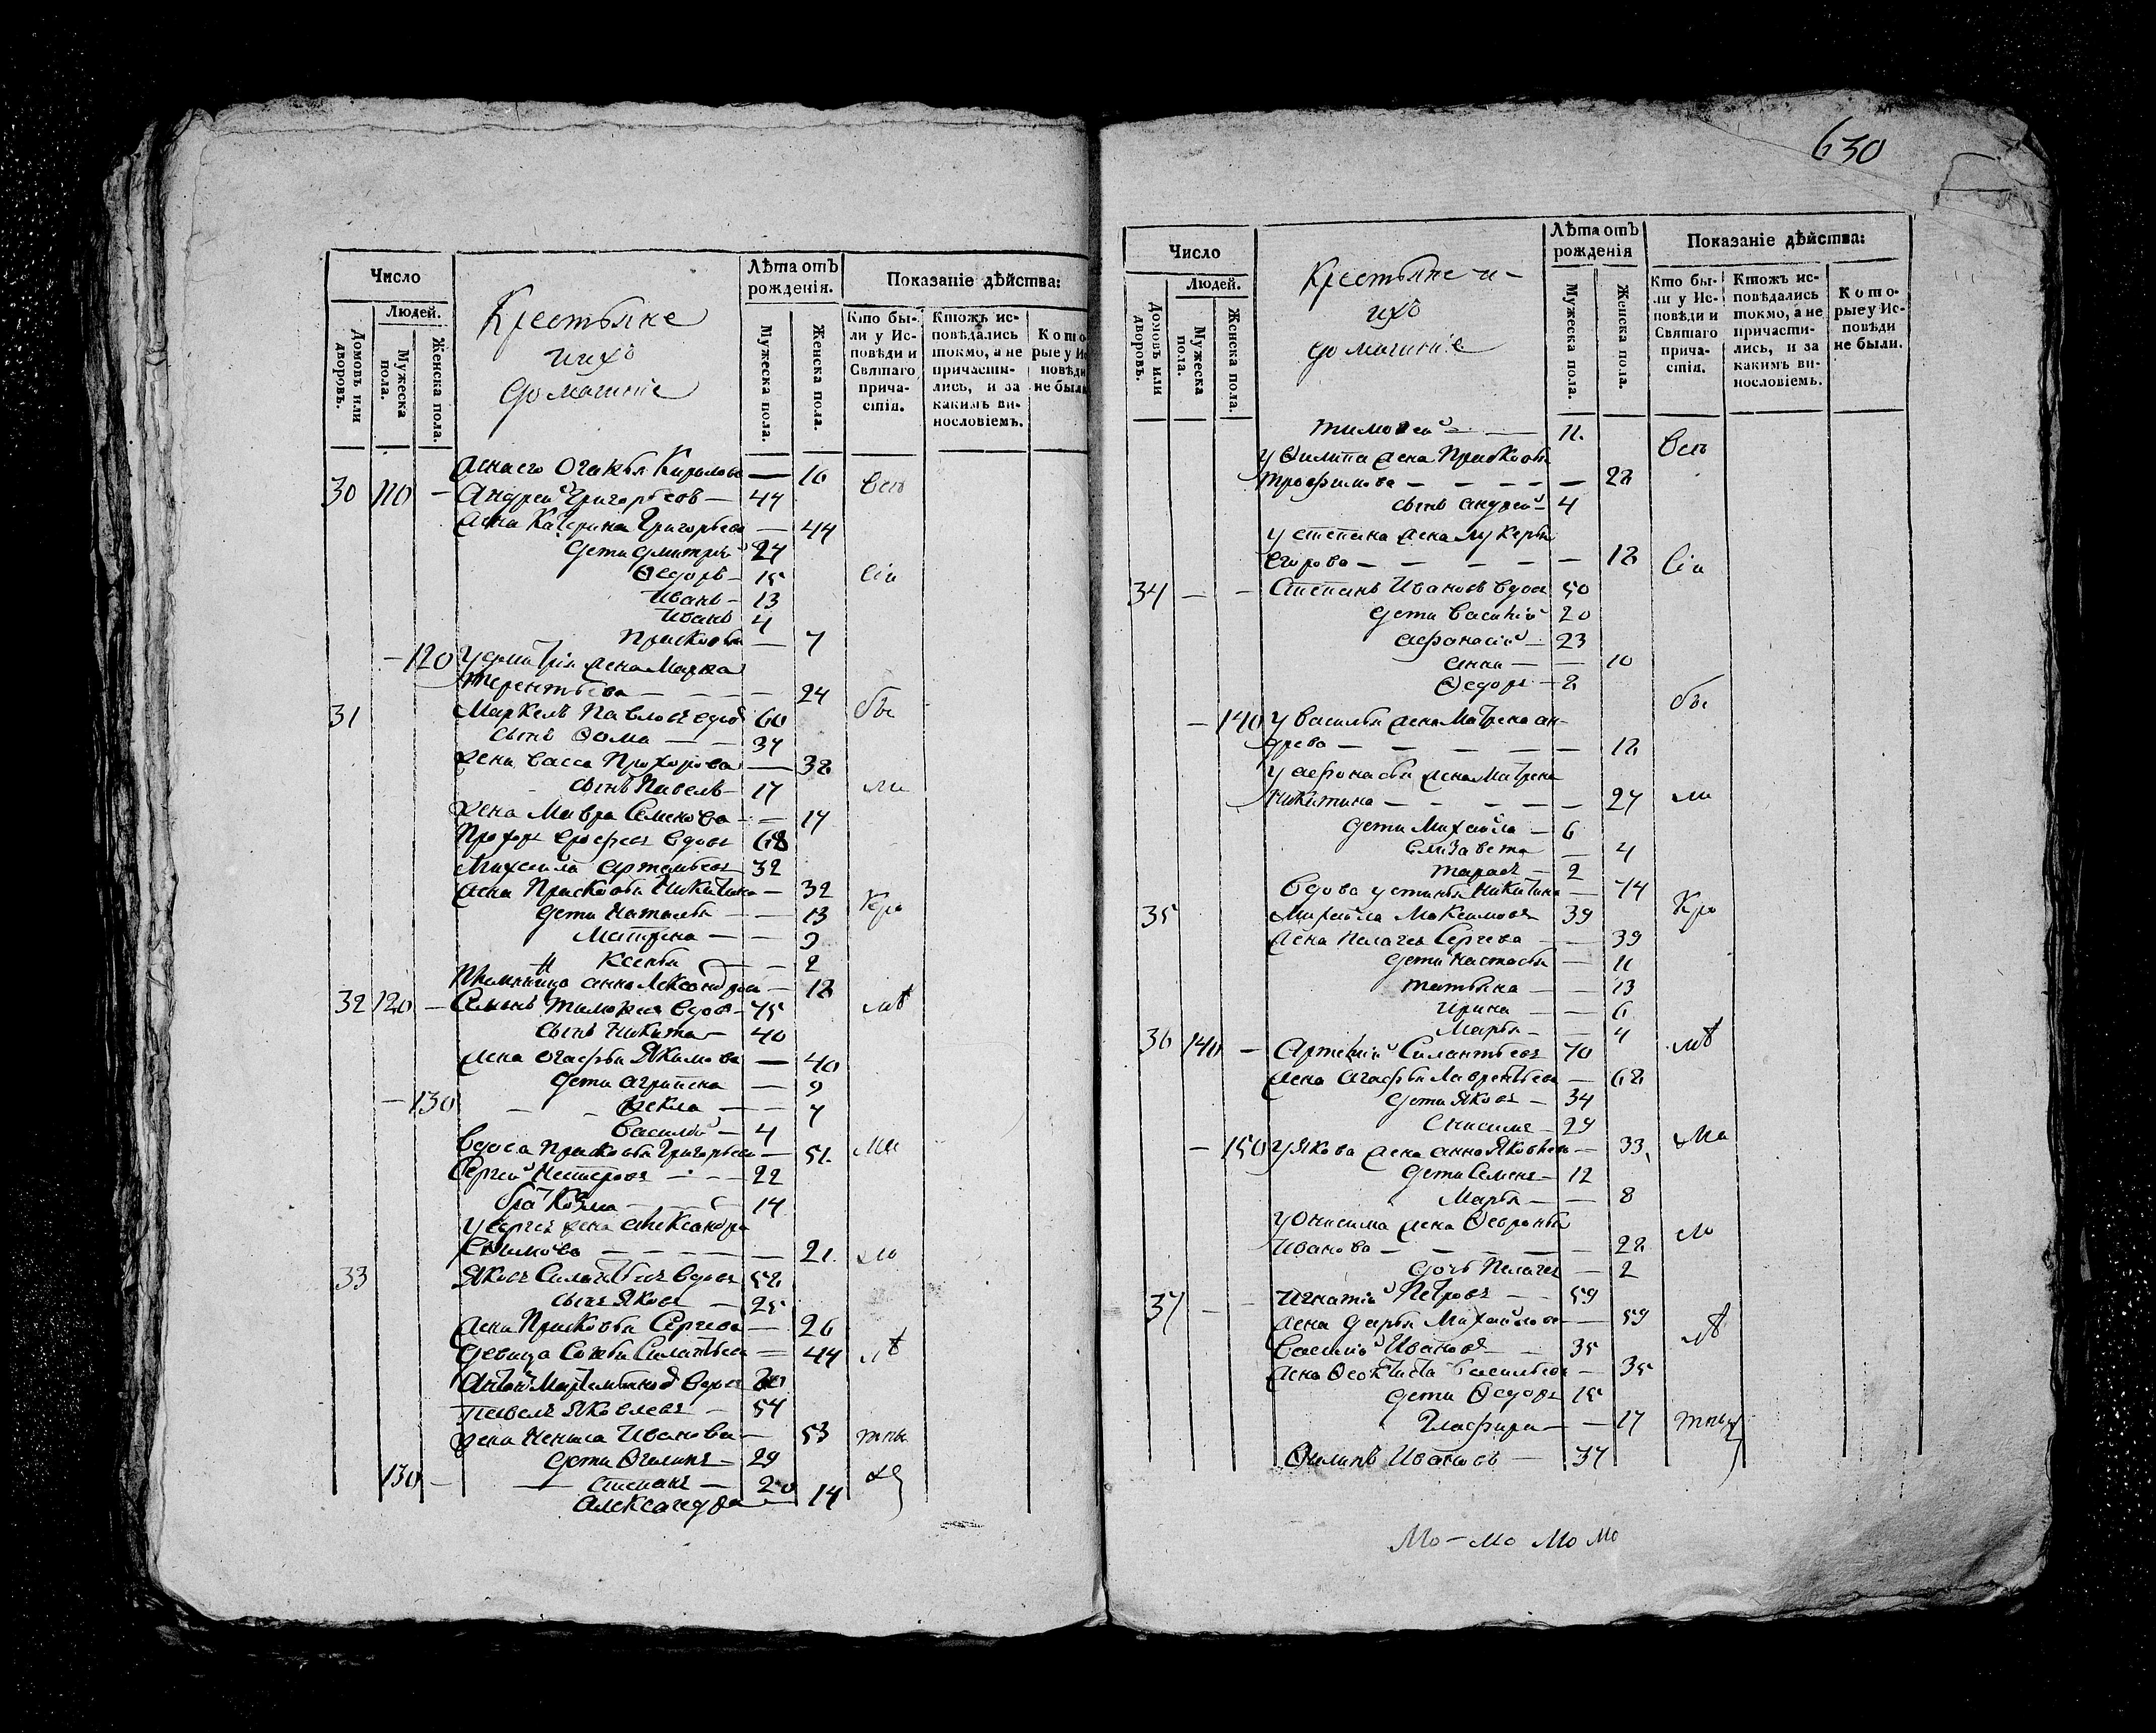 Число
Людей.
Домовъ или дворовъ.
Мужеска пола.
Женска пола.
Крестьяне
и ихъ
домашніе
Лѣта отъ рожденія.
Мужеска пола.
Женска пола.
Показаніе дѣйства:
Кто бы-
ли у Ис-
повѣди и
Святаго
прича-
стія.
Ктожъ ис-
повѣдались
токмо, а не
причасти-
лись, и за
какимъ ви-
нословіемъ.
Кото
рые у Ис
повѣди
не были
жена его Кирилова — 16 всѣ
30 110 — Андрей Григорьевъ — 44
жена Катерина Григорьева — 44
дети Дмитрей 24
Ѳедоръ — 15 сіи
Иванъ — 13
Иванъ 4
Прасковья — 7
— 120 у Дмитрія жена Марѳа
Терентьева — — — — 24
31 Маркелъ Павловъ вдовъ 60 бы
сынъ Ѳома — — 34
жена Васса Прохорова — 38
сынъ Павелъ — 17 ли
жена Мавра Семенова — — 17
Прохоръ Ерофеевъ вдовъ 68
Михайла Артемьевъ 32
жена Прасковья Никитина — 32
дети Наталья — — 13 Кро
Матрена — — 9
Ксенья — — 2
Племянница Анна Александрова — 18
32 120 — Тимофеевъ вдовъ — 75 мѣ
сынъ Никита — 40
жена Огафья Якимова — 40
дети Агрипена — 9
— 130 Ѳекла — — 7
Василій — 4
Вдова Прасковья Григорьева — 51 Ма
Сергей Нестеровъ — — — 22
братъ Козма — — — 14
у Сергея жена Александра
Ефимова — — — — — 21 ло
33 Яковъ Силантьевъ вдовъ 52
сынъ Яковъ — 25
жена Прасковья Сергеева — 26
Девица Софья Силантьева — 44 лѣ
Антонъ Мартемьяновъ вдовъ
Павелъ Яковлевъ — 54
жена Ненила Иванова — 53 тны
дети — 29
130 — Степанъ — 20 хъ
Александра — 14
630
Число
Людей.
Домовъ или дворовъ.
Мужеска пола.
Женска пола.
Крестьяне и
ихъ
домашніе
Лѣта отъ рожденія
Мужеска пола.
Женска пола.
Показаніе дѣйства:
Кто бы-
ли у Ис-
повѣди и
Святаго
прича-
стія.
Ктожъ ис-
повѣдались
токмо, а не
причасти-
лись, и за
какимъ ви-
нословіемъ.
Кото-
рые у Ис-
повѣди
не были.
Тимоѳей — — 11. Всѣ
у Ѳилипа жена Прасковья
Трофимова — — — — — 28
сынъ Андрей — 4
у Степана жена Лукерья
Егорова — — — — — 18 Сіи
34 — — Степанъ Ивановъ вдовъ 50
дети Василій 20
Афонасій — 23
Анна — — 10
Ѳедоръ — 2 бы
— 140 у Василья жена Матрена Ан-
дреева — — — — — 18
у Афонасья жена Матрена
Никитина — — — — — 27 ли
дети Михайла — 6
Елизавета — 4
Тарасъ — 2
Вдова Устинья Никитина — 74
35 Михайла Максимовъ 39 Кро
жена Пелагея Сергеева — — 39
дети Настасья — 11
Татьяна — — 13
Ирина — — 6
Марья — — 4
36 140 — Артемій Силантьевъ 70 мѣ
жена Агафья Лаврентьева — 68
дети Яковъ — 34
Онисимъ — 29
— 150 у Якова жена Анна Яковлева — 33 Ма
дети Семенъ — 12
Марья — — 8
у Онисима жена Ѳевронья
Иванова — — — — — 28 ло
дочь Пелагея — 2
37 — — Игнатій Петровъ — — 59
жена Дарья Михайлова — 59
Василій Ивановъ — 35 лѣ
жена Ѳеоктиста Васильева — 35
дети Ѳедоръ 15
Глафира — — 17 тныхъ
Ѳилипъ Ивановъ — 37
Мо — мо Мо Мо